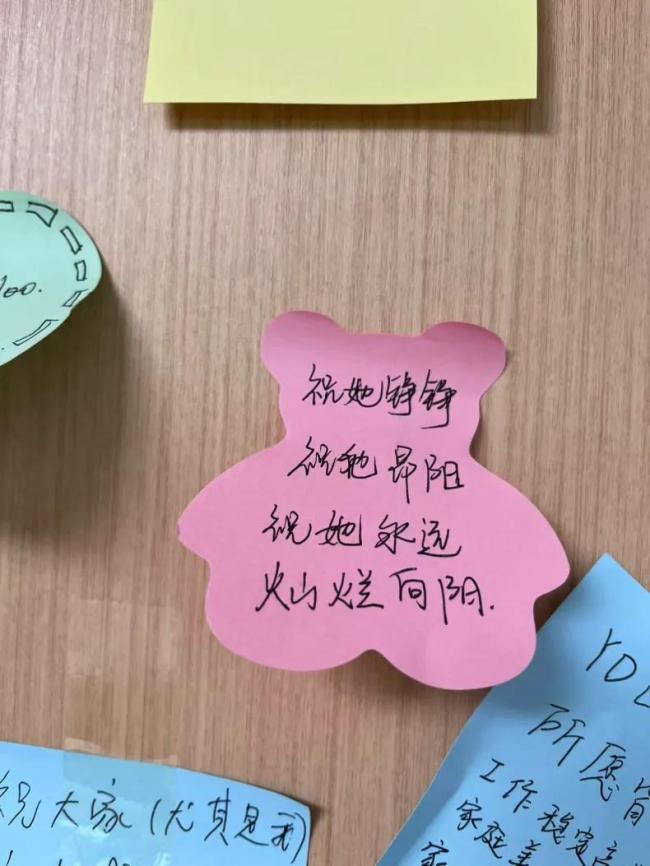 祝她铮铮
祝她昂阳
祝她永远
灿烂向阳.
祝大家(尤其是我)
YOL
所愿皆
工作稳定
家庭美
家